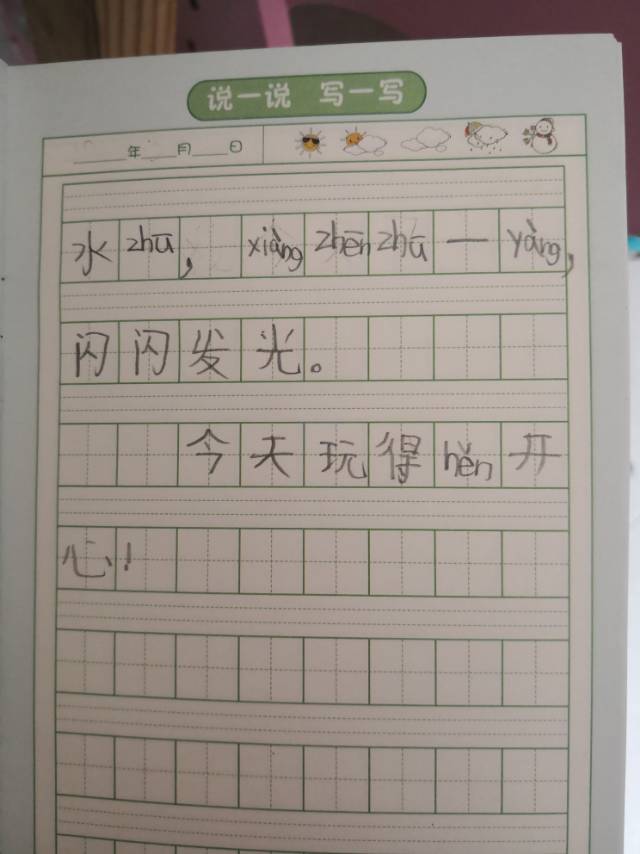 说一说 写一写
年 月 日
水zhū，xiàng zhēn zhū 一 yàng，
闪闪发光。
今天玩得hěn开
心！